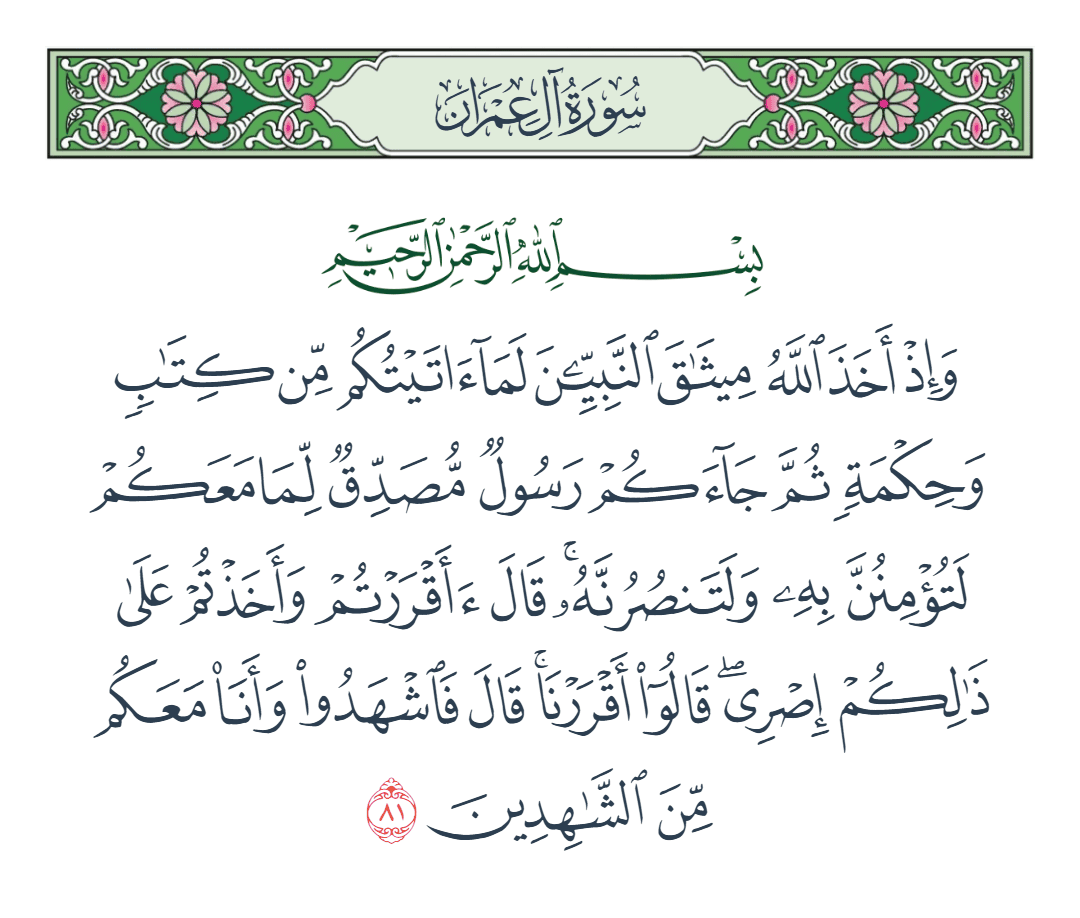 سُورَةُ آلِ عِمۡرَانَ
بِسۡمِ ٱللَّهِ ٱلرَّحۡمَٰنِ ٱلرَّحِيمِ
وَإِذۡ أَخَذَ ٱللَّهُ مِيثَٰقَ ٱلنَّبِيِّـۧنَ لَمَآ ءَاتَيۡتُكُم مِّن كِتَٰبٖ
وَحِكۡمَةٖ ثُمَّ جَآءَكُمۡ رَسُولٞ مُّصَدِّقٞ لِّمَا مَعَكُمۡ
لَتُؤۡمِنُنَّ بِهِۦ وَلَتَنصُرُنَّهُۥۚ قَالَ ءَأَقۡرَرۡتُمۡ وَأَخَذۡتُمۡ عَلَىٰ
ذَٰلِكُمۡ إِصۡرِيۖ قَالُوٓاْ أَقۡرَرۡنَاۚ قَالَ فَٱشۡهَدُواْ وَأَنَا۠ مَعَكُم
مِّنَ ٱلشَّٰهِدِينَ ٨١